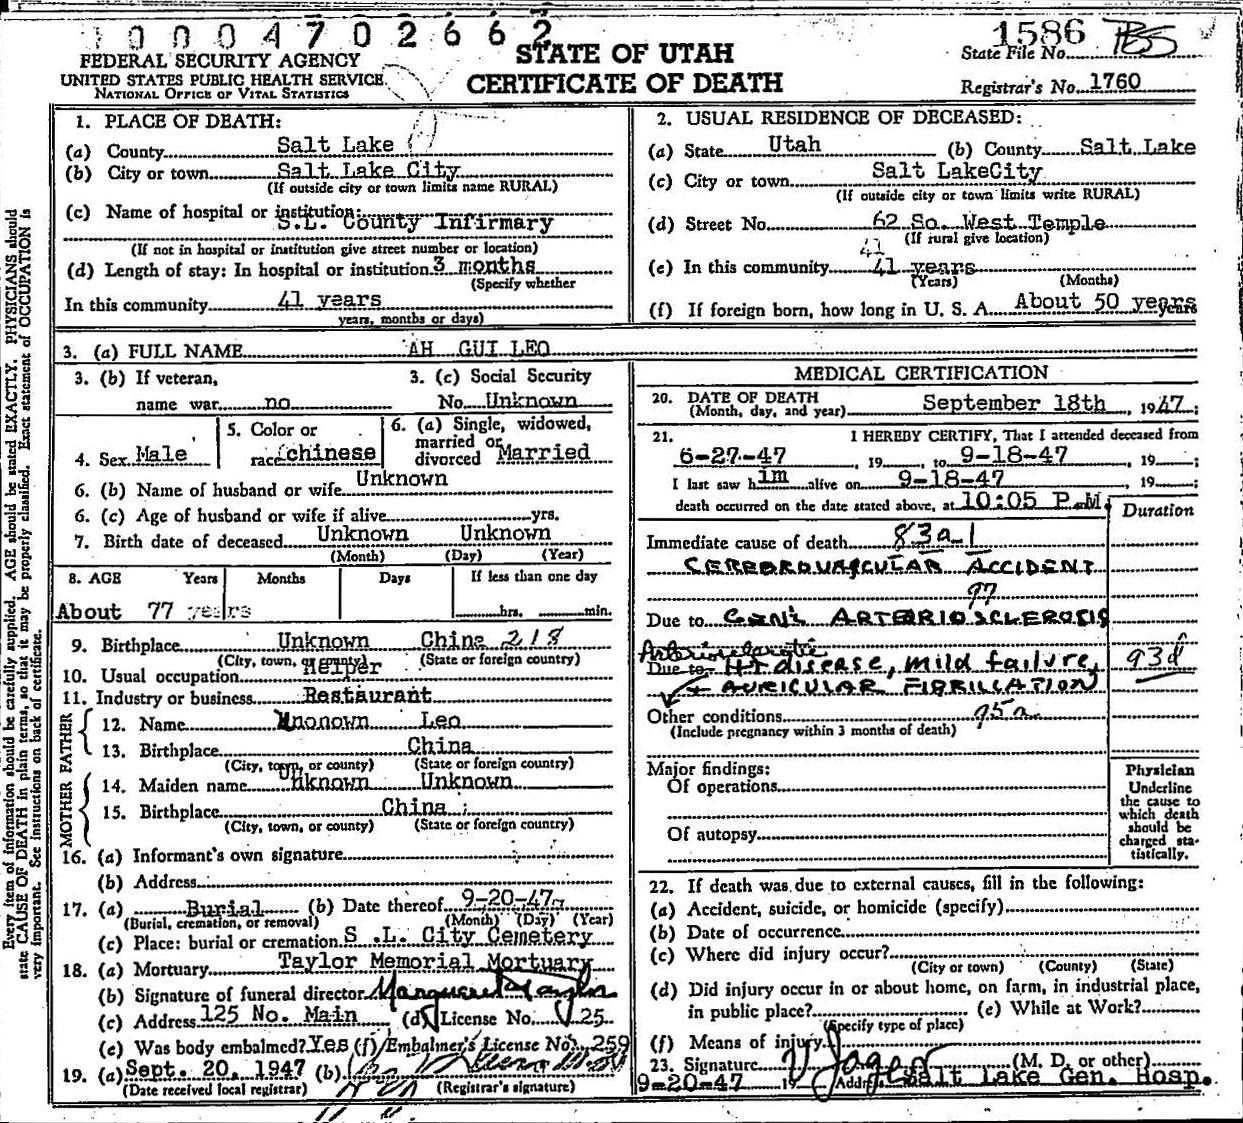 0004702662
1586
FEDERAL SECURITY AGENCY
UNITED STATES PUBLIC HEALTH SERVICE
NATIONAL OFFICE OF VITAL STATISTICS
STATE OF UTAH
CERTIFICATE OF DEATH
State File No.
Registrar's No. 1760
Every item of information should be carefully supplied. AGE should be stated EXACTLY. PHYSICIANS should
state CAUSE OF DEATH in plain terms, so that it may be properly classified. Exact statement of OCCUPATION is
very important. See instructions on back of certificate.
1. PLACE OF DEATH:
(a) County Salt Lake
(b) City or town Salt Lake City
(If outside city or town limits name RURAL)
(c) Name of hospital or institution:
S.L. County Infirmary
(If not in hospital or institution give street number or location)
(d) Length of stay: In hospital or institution 3 months
(Specify whether
In this community 41 years
years, months or days)
2. USUAL RESIDENCE OF DECEASED:
(a) State Utah (b) County Salt Lake
(c) City or town Salt LakeCity
(If outside city or town limits write RURAL)
(d) Street No. 62 So. West Temple
(If rural give location)
41
(e) In this community 41 years
(Years) (Months)
(f) If foreign born, how long in U. S. A. About 50 years
3. (a) FULL NAME AH GUI LEO
3. (b) If veteran,
name war no
3. (c) Social Security
No. Unknown
4. Sex Male
5. Color or
race chinese
6. (a) Single, widowed,
married or
divorced Married
6. (b) Name of husband or wife Unknown
6. (c) Age of husband or wife if alive yrs.
7. Birth date of deceased Unknown Unknown
(Month) (Day) (Year)
8. AGE Years Months Days If less than one day
About 77 years hrs. min.
9. Birthplace Unknown China 218
(City, town, or county) (State or foreign country)
10. Usual occupation Helper
11. Industry or business Restaurant
FATHER
12. Name Unonown Leo
13. Birthplace China
(City, town, or county) (State or foreign country)
MOTHER
14. Maiden name Unknown Unknown
15. Birthplace China
(City, town, or county) (State or foreign country)
16. (a) Informant's own signature
(b) Address
17. (a) Burial (b) Date thereof 9-20-47
(Burial, cremation, or removal) (Month) (Day) (Year)
(c) Place: burial or cremation S .L. City Cemetery
18. (a) Mortuary Taylor Memorial Mortuary
(b) Signature of funeral director Margueret Taylor
(c) Address 125 No. Main (d) License No. 25
(e) Was body embalmed? Yes (f) Embalmer's License No. 259
19. (a) Sept. 20, 1947 (b)
(Date received local registrar) (Registrar's signature)
MEDICAL CERTIFICATION
20. DATE OF DEATH
(Month, day, and year) September 18th , 1947;
21. I HEREBY CERTIFY, That I attended deceased from
6-27-47 , 19 to 9-18-47 , 19 ;
I last saw him alive on 9-18-47 , 19 ;
death occurred on the date stated above, at 10:05 P.M.
Duration
Immediate cause of death 83a-1
CEREBROVASCULAR ACCIDENT
97
Due to GEN'L ARTERIOSCLEROSIS
Arteriosclerotic
Due to HT disease, mild failure, 93d
+ AURICULAR FIBRILLATION
Other conditions 95a
(Include pregnancy within 3 months of death)
Major findings:
Of operations
Of autopsy
Physician
Underline
the cause to
which death
should be
charged sta-
tistically.
22. If death was due to external causes, fill in the following:
(a) Accident, suicide, or homicide (specify)
(b) Date of occurrence
(c) Where did injury occur?
(City or town) (County) (State)
(d) Did injury occur in or about home, on farm, in industrial place,
in public place? (e) While at Work?
(Specify type of place)
(f) Means of injury
23. Signature V Jager (M. D. or other)
9-20-47 19 Address Salt Lake Gen. Hosp.